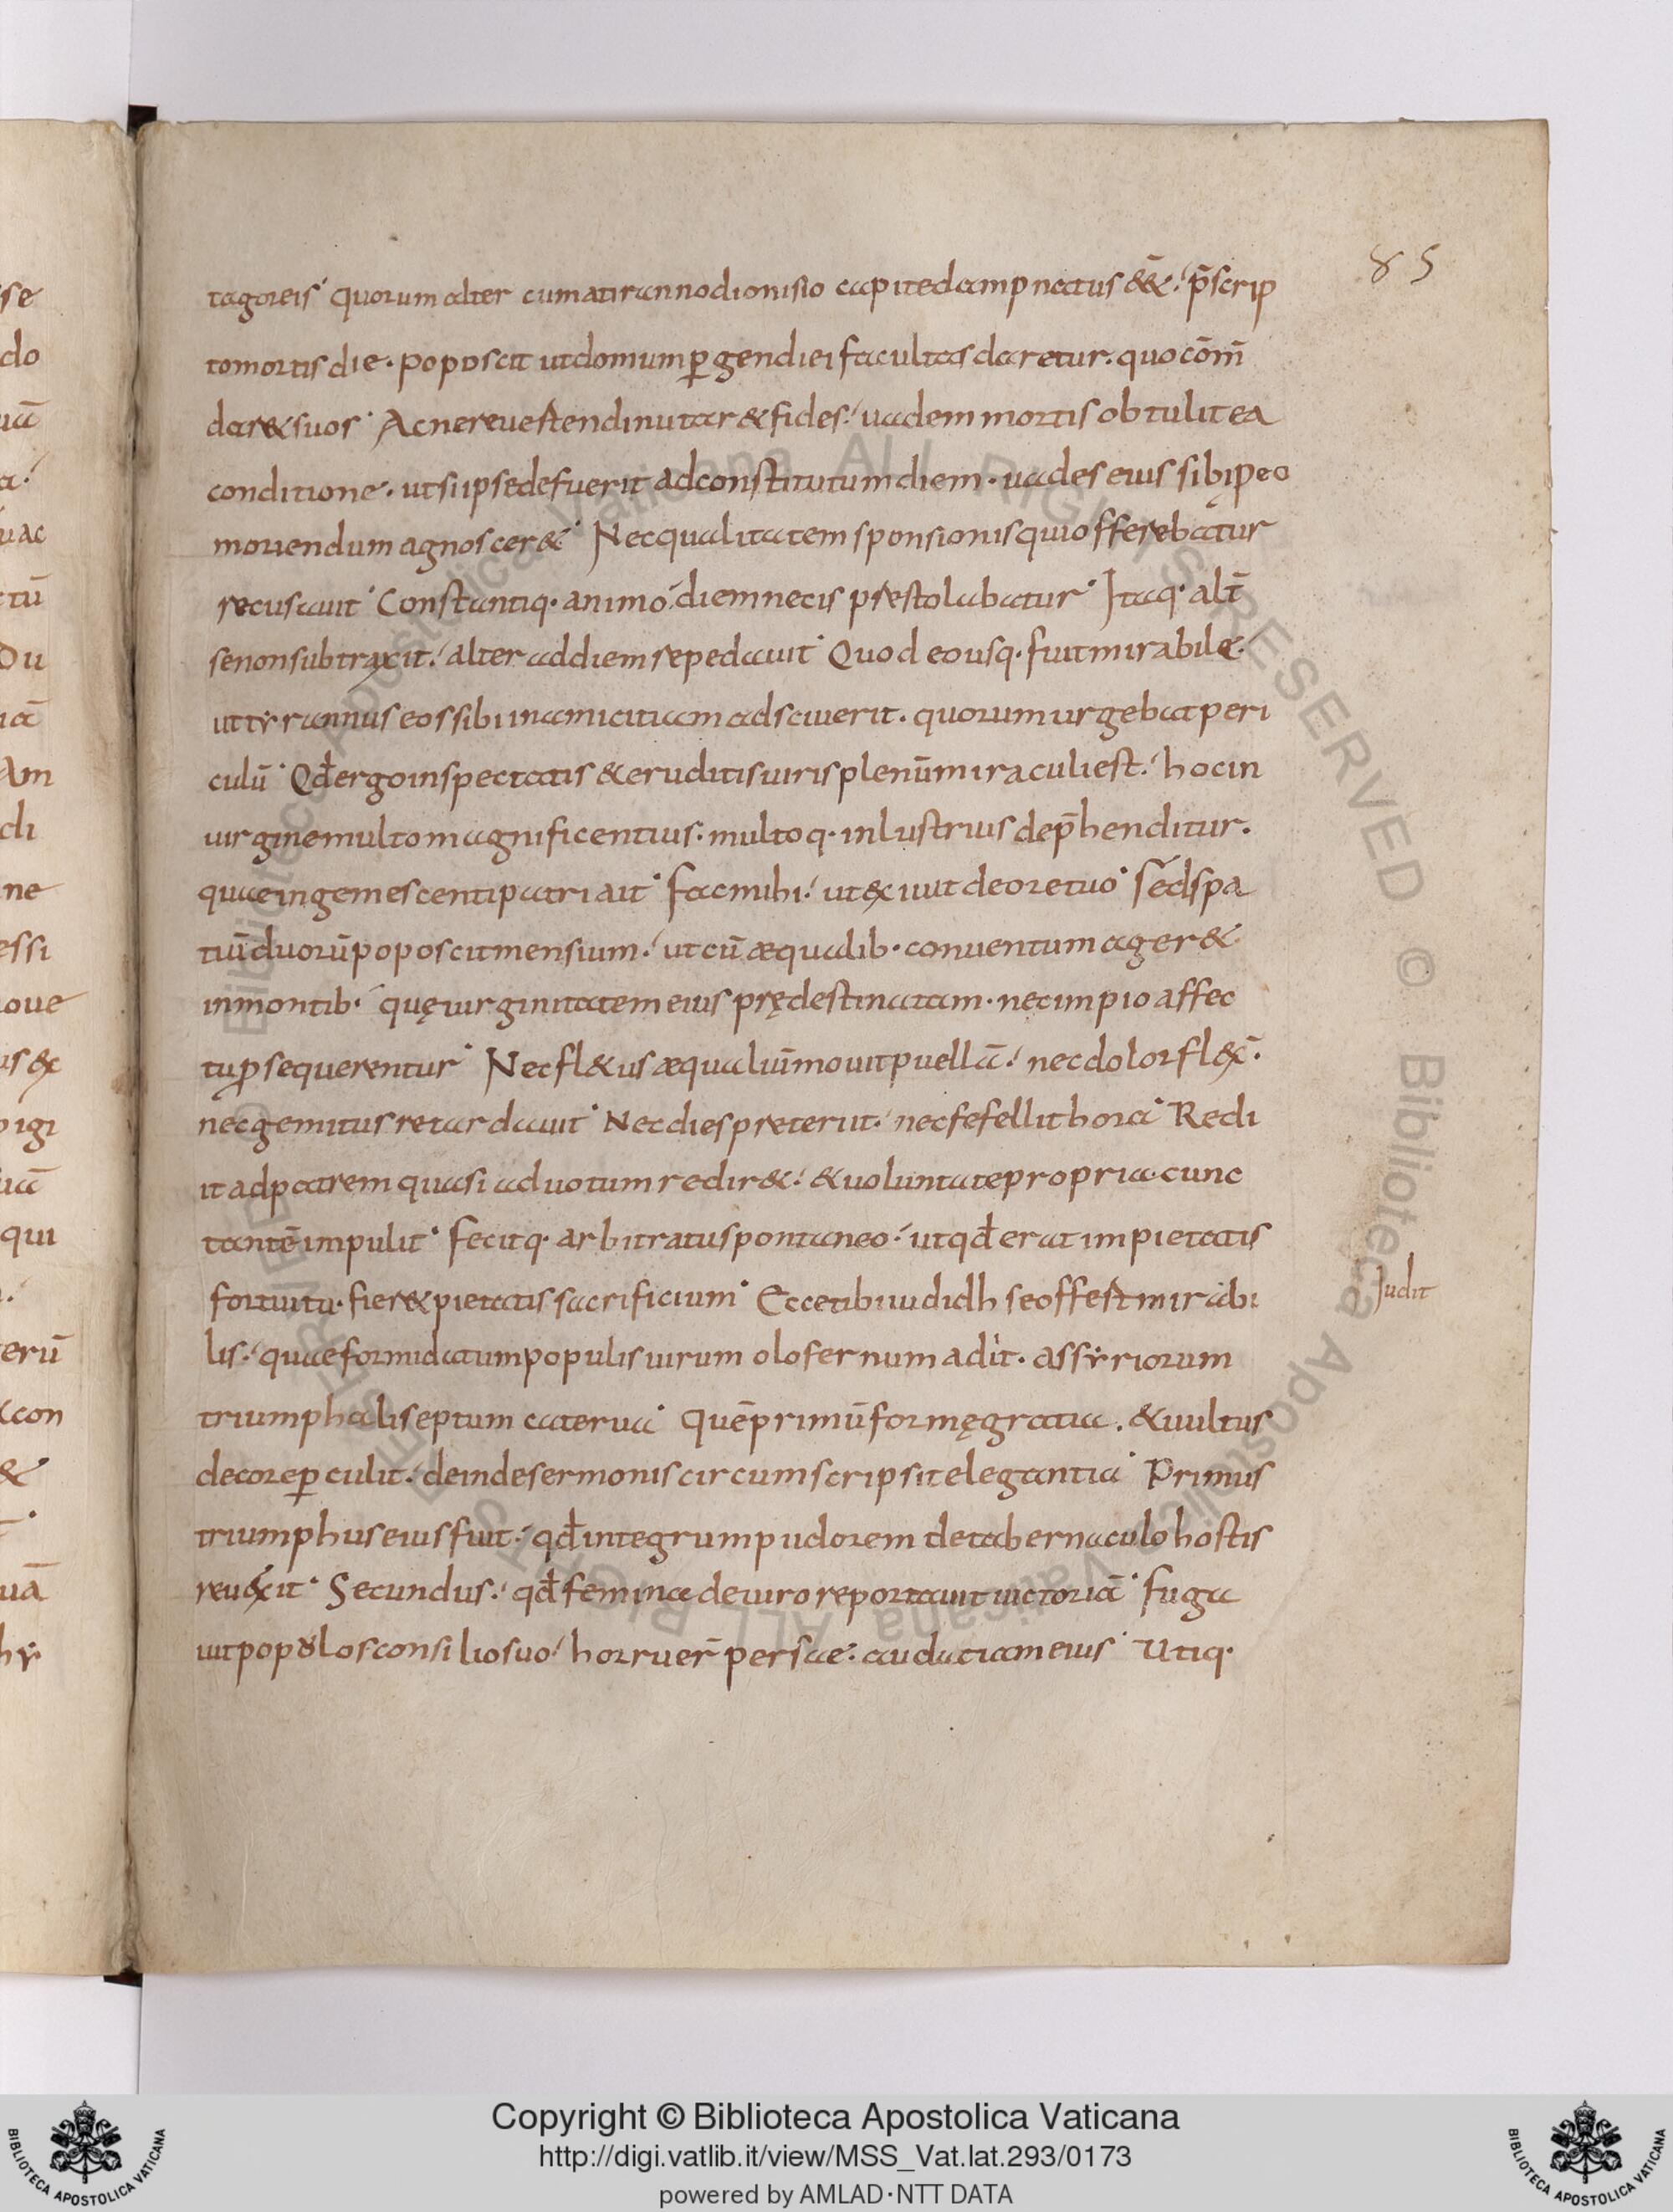 85
tagoreis· quorum alter cum a tiranno dionisio capite dampnatus &&̄· p̄scrip
to mortis die· poposcit ut domum ꝑgendi ei facultas daretur· quo cōm̄
dar& suos· Ac ne reuertendi nutar& fides· uadem mortis obtulit ea
conditione· ut si ipse defuerit ad constitutum diem· uades eius sibi p eo
moriendum agnoscer&· Nec qualitatem sponsionis qui offerebatur
recusauit· Constantiq· animo diem necis prestolabatur· Itaq· alt̄
se non subtraxit· alter ad diem repedauit· Quod eousq· fuit mirabile·
ut tyrannus eos sibi in amicitiam adsciuerit· quorum urgebat peri
culū· Qđ ergo in spectatis & eruditis uiris plenū miraculi est· hoc in
uirgine multo magnificentius· multoq· inlustrius dep̄henditur·
quae ingemescenti patri ait· fac mihi· ut exiuit de ore tuo· sed spa
tiū duorū poposcit mensium· ut cū æqualib· conuentum ager&
in montib· quę uirginitatem eius prędestinatam· nec impio affec
tu ꝑsequerentur· Nec fl&us æqualiū mouit puellā· nec dolor fl&x̄·
nec gemitus retardauit· Nec dies preteriit· nec fefellit hora· Redi
it ad patrem quasi ad uotum redir&· & uoluntate propria cunc
tantē impulit· fecitq· arbitratu spontaneo· ut qđ erat impietatis
fortuitu· fier& pietatis sacrificium· Ecce tibi iudidh se offert mirabi
Judit
lis· quae formidatum populis uirum olofernum adit· assyriorum
triumphali septum caterua· Quē primū formę gratia· & uultus
decore ꝑculit· deinde sermonis circumscripsit elegantia· Primus
triumphus eius fuit· qđ integrum pudorem de tabernaculo hostis
reuexit· Secundus· qđ femina de uiro reportauit uictoriā· fuga
uit populos consilio suo· horruer̄ persae· audatiam eius· Utiq·
se
do
uā
a·
uac
tū
Du
iā
Am
di
ne
essi
oue
is &
pigi
uā
qui
erū
con
&
uā
hy
Copyright © Biblioteca Apostolica Vaticana
http://digi.vatlib.it/view/MSS_Vat.lat.293/0173
powered by AMLAD·NTT DATA
BIBLIOTECA APOSTOLICA VATICANA
BIBLIOTECA APOSTOLICA VATICANA